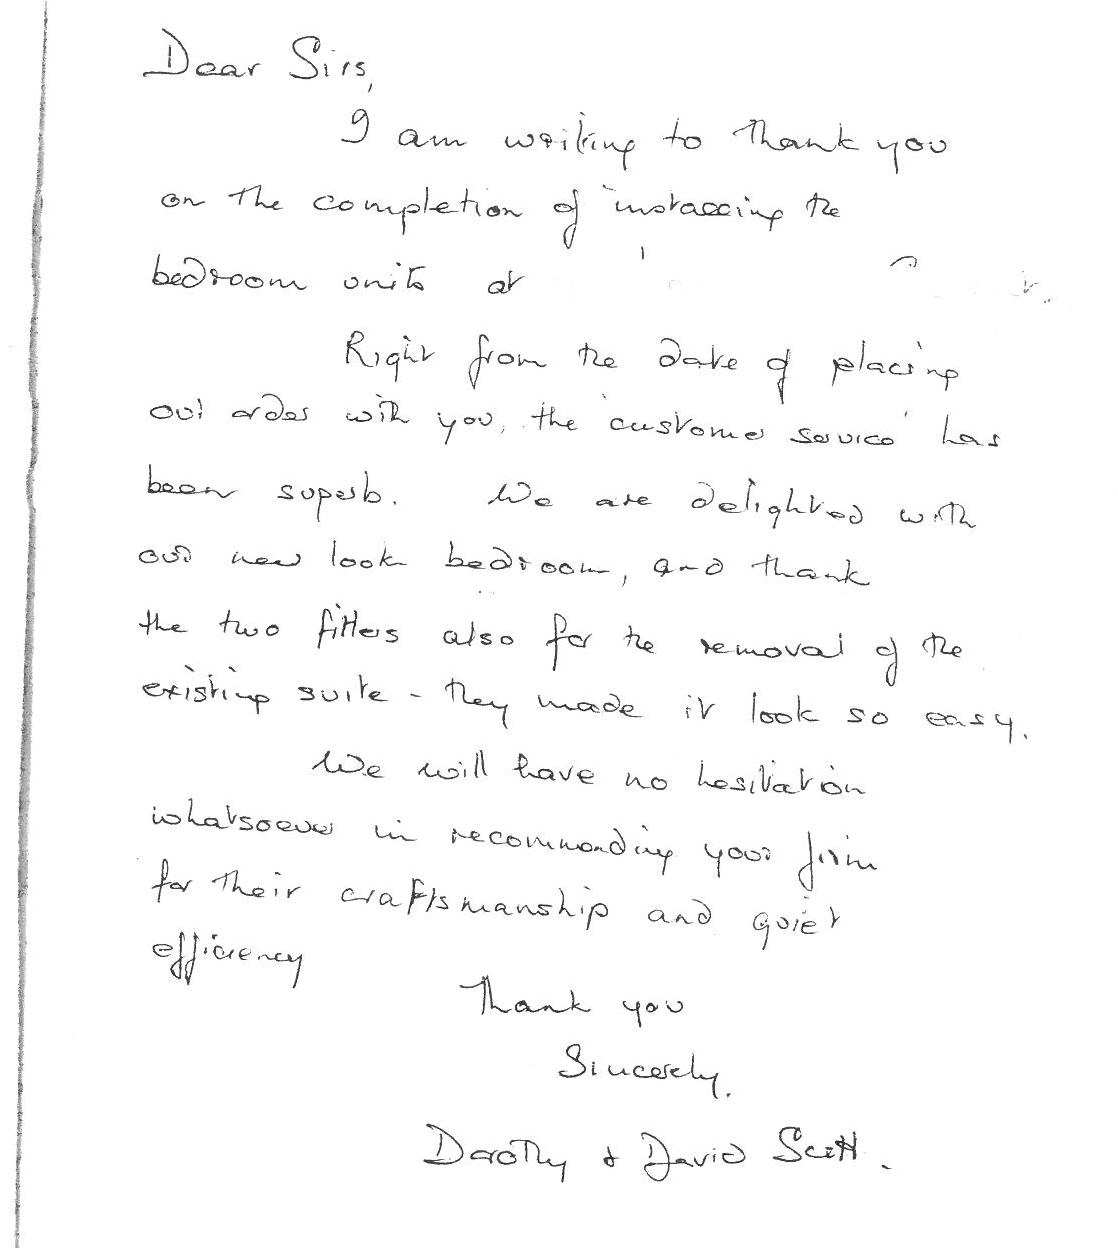 Dear Sirs,
I am writing to thank you
on the completion of installing the
bedroom units at
Right from the date of placing
our order with you, the 'customer service' has
been superb. We are delighted with
our new look bedroom, and thank
the two fitters also for the removal of the
existing suite - they made it look so easy.
We will have no hesitation
whatsoever in recommending your firm
for their craftsmanship and quiet
efficiency
Thank you
Sincerely,
Dorothy & David Scott.